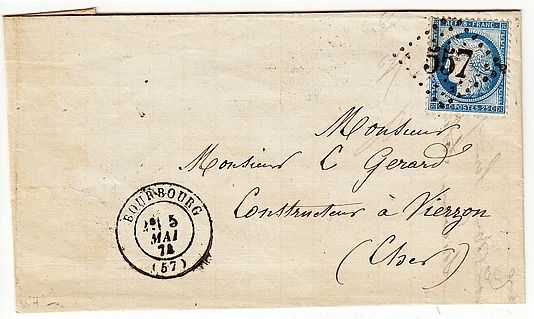 REPUB. FRANC.
557
POSTES 25 C
Monsieur
Monsieur C Gerard
Constructeur à Vierzon
(Cher)
BOURBOURG
5
MAI
74
(57)